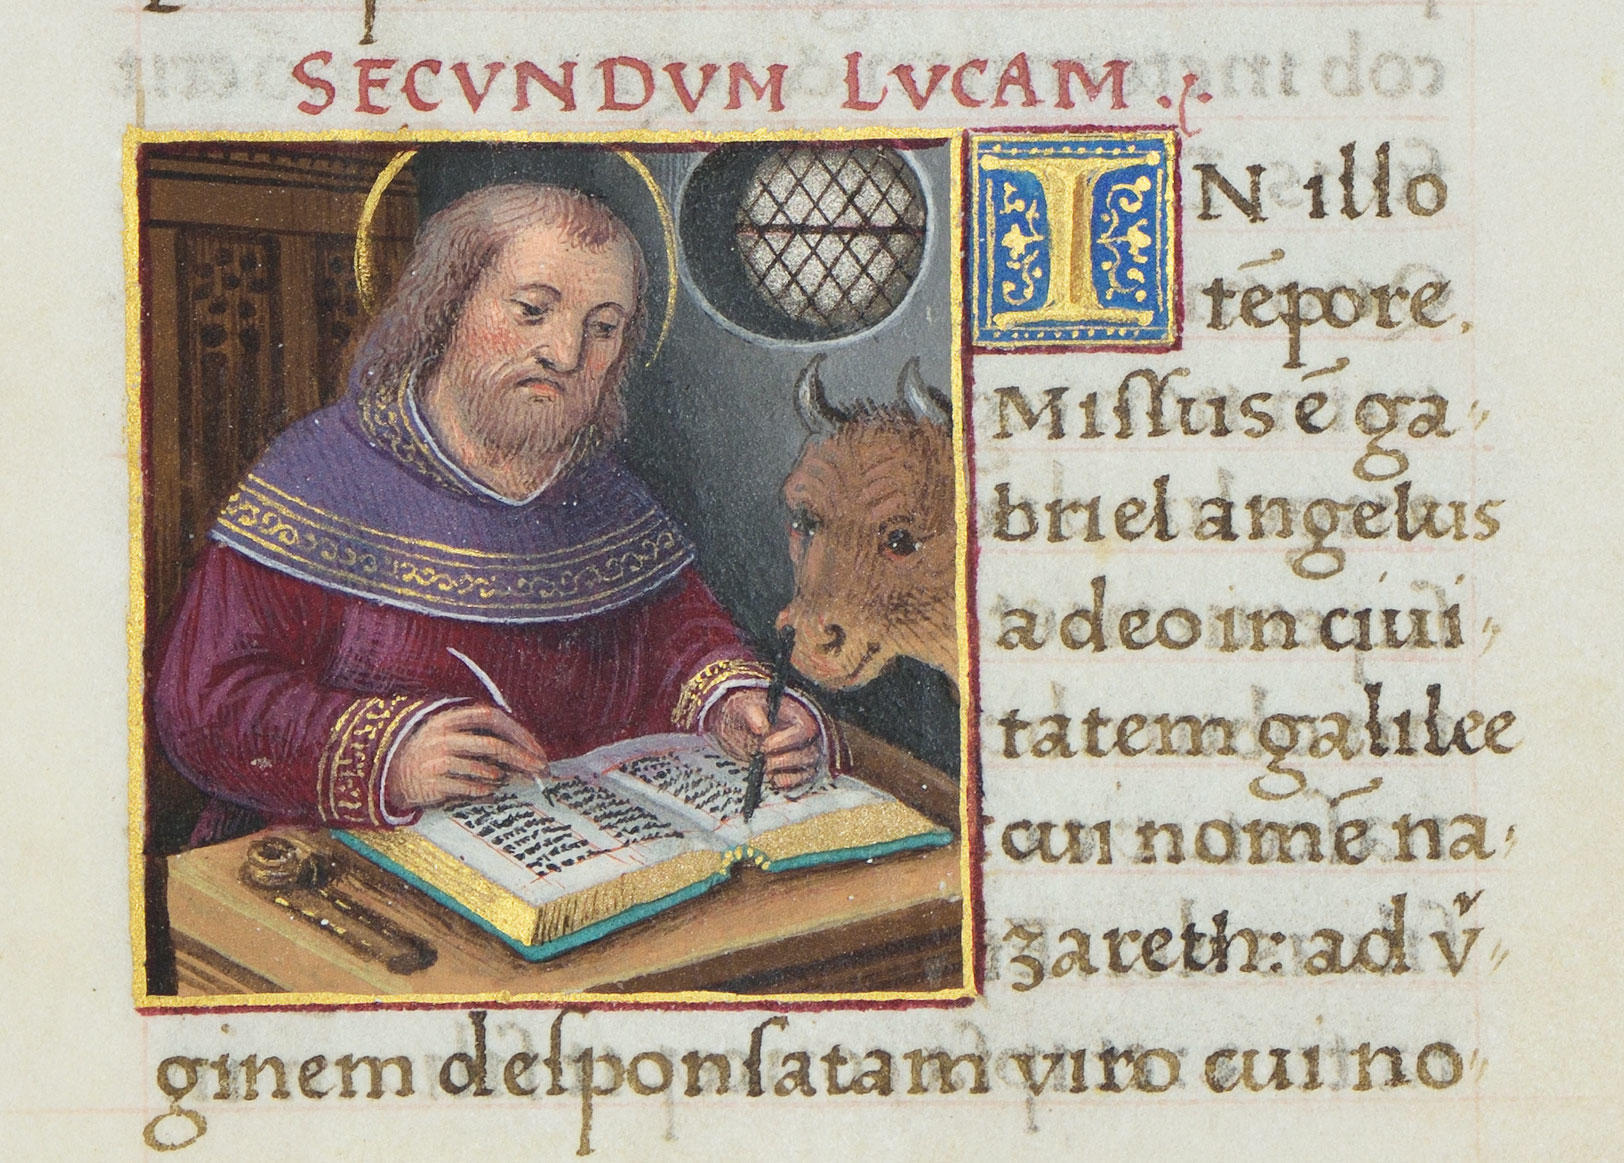 SECVNDVM LVCAM
IN illo
tēpore.
Miſſus ē ga-
briel angelus
a deo in ciui-
tatem galilee
cui nomē na-
zareth: ad vͬ-
ginem deſponſatam viro cui no-